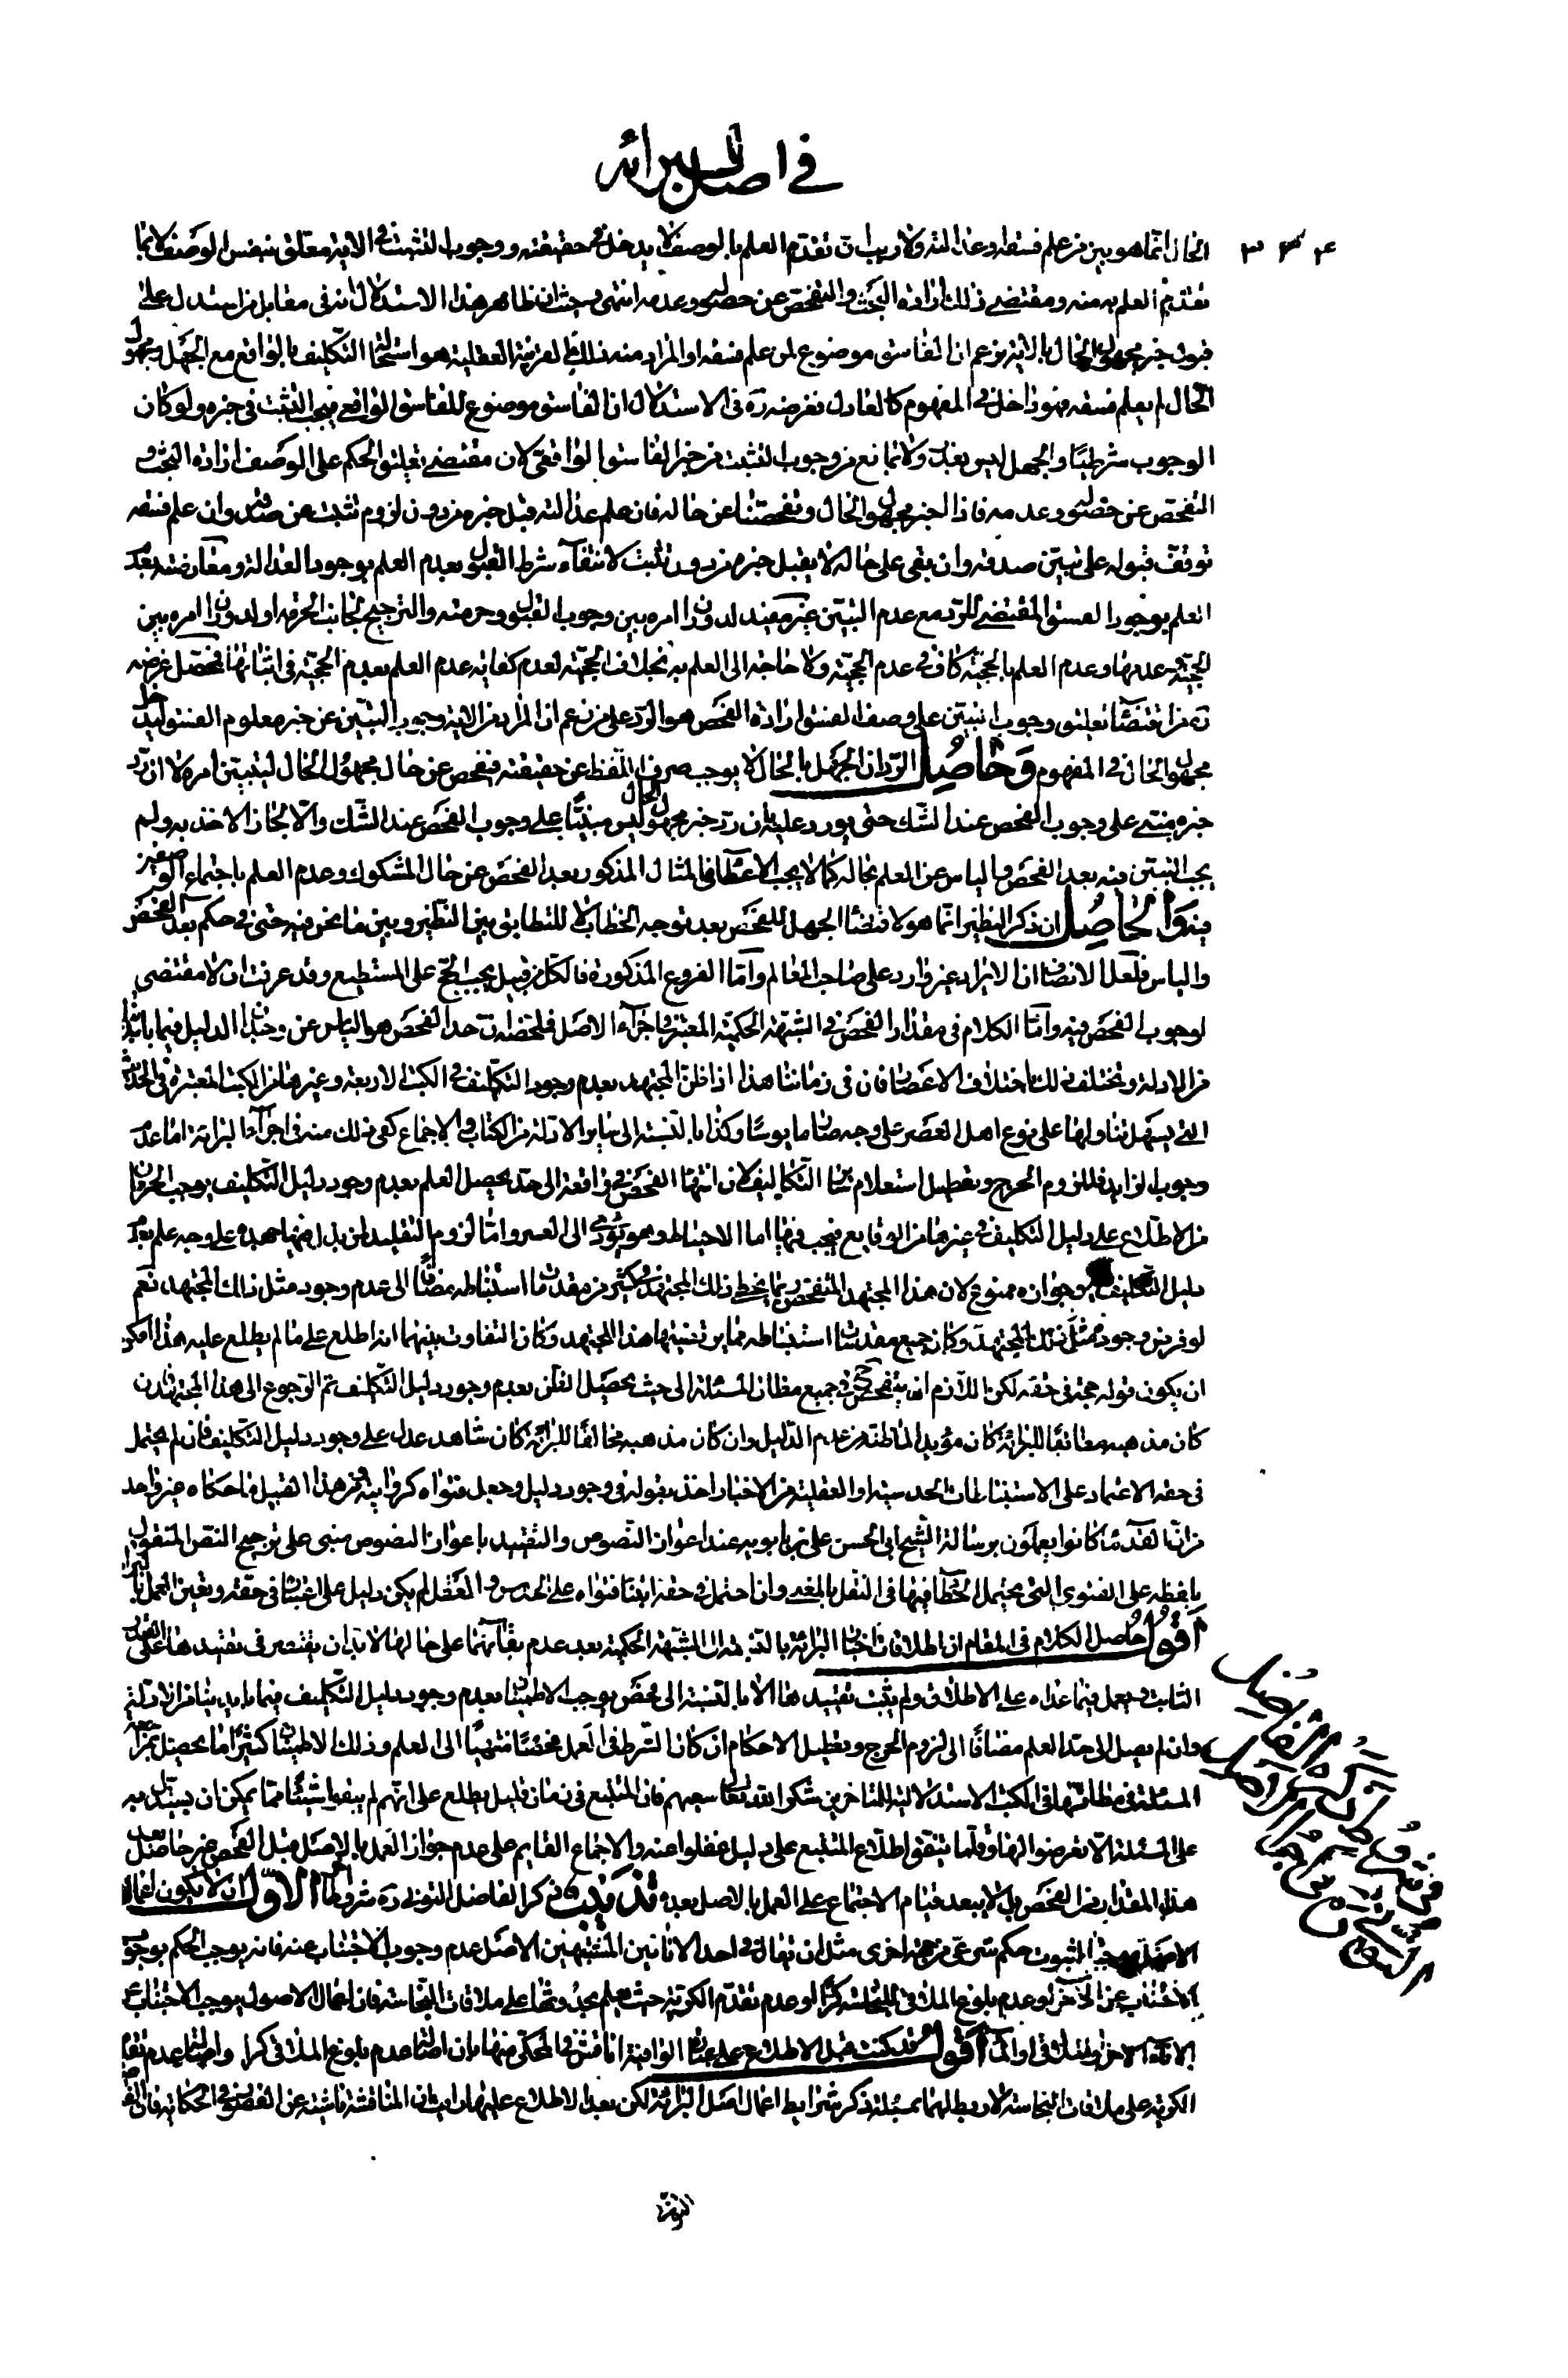 في اصالة البرائة
٣٣٤
الحال انما هو بين من علم فسقه وعدالته ولا ريب ان تقدم العلم بالوصف لا يدخل في حقيقته ووجوب التثبت في الاية معلق بنفس الوصف لا بما
تقدم العلم به منه ومقتضى ذلك ارادة البحث والتفحص عن حصوله وعدمه انتهى وحيث ان ظاهر هذا الاستدلال انه في مقابل من استدل على
قبول خبر مجهول الحال بالاية بزعم ان الفاسق موضوع لمن علم فسقه او المراد منه ذلك للقرينة العقلية هو استحالة التكليف بالواقع مع الجهل ومجهول
الحال لم يعلم فسقه فهو داخل في المفهوم كالعادل فغرضه ره في الاستدلال ان الفاسق موضوع للفاسق الواقعي فيجب التثبت في خبره ولو كان
الوجوب شرطيا والجهل ليس بعذر ولا مانع من وجوب التثبت من خبر الفاسق الواقعي لان مقتضى تعليق الحكم على الوصف ارادة البحث و
التفحص عن حصوله وعدمه فاذا اخبر مجهول الحال وتفحصنا عن حاله فان علم عدالته قبل خبره من دون لزوم تثبت عن صدقه وان علم فسقه
توقف قبوله على تبين صدقه وان بقى على حاله لا يقبل خبره من دون تثبت لانتفاء شرط القبول بعدم العلم بوجود العدالة ومعارضته بعدم
العلم بوجود الفسق المقتضى للرد مع عدم التبين غير مفيد لدوران امره بين وجوب القبول وحرمته والترجيح لجانب الحرمة او لدوران امره بين
الحجية وعدمها وعدم العلم بالحجية كاف في عدم الحجية ولا حاجة الى العلم به بخلاف الحجية لعدم كفاية عدم العلم بعدم الحجية في اثباتها فمحصل غرضه
ره من اقتضاء تعليق وجوب التبين على وصف الفسق ارادة الفحص هو الرد على من زعم ان المراد من الاية وجوب التبين عن خبر معلوم الفسق ليدخل
مجهول الحال في المفهوم وحاصل الرد ان الجهل بالحال لا يوجب صرف اللفظ عن حقيقته فيفحص عن حال مجهول الحال ليتبين امره لا ان رد
خبره مبتنى على وجوب الفحص عند الشك حتى يورد عليه بان رد خبر مجهول الحال ليس مبنيا على وجوب الفحص عند الشك والا لجاز الاخذ به ولم
يجب التبين فيه بعد الفحص والياس عن العلم بحاله كما لا يجب الاعطاء في المثال المذكور بعد الفحص عن حال المشكوك وعدم العلم باجتماع الوصفين
فيه والحاصل ان ذكر النظير انما هو لاقتضاء الجهل للفحص بعد توجه الخطاب لا للتطابق بين النظير وبين ما نحن فيه حتى في حكم بعد الفحص
والياس فلعل الانصاف ان الايراد غير وارد على صاحب المعالم واما الفروع المذكورة فالكل من قبيل يجب الحج على المستطيع وقد عرفت ان لا مقتضى
لوجوب الفحص فيه واما الكلام في مقدار الفحص في الشبهة الحكمية المعتبر في اجراء الاصل فملخصه ان حد الفحص هو الياس عن وجدان الدليل فيما بايدينا
من الادلة ويختلف ذلك باختلاف الاعصار فان في زماننا هذا اذا ظن المجتهد بعدم وجود التكليف في الكتب الاربعة وغيرها من الكتب المعتبرة في الحديث
التي يسهل تناولها على نوع اهل العصر على وجه صار مايوسا وكذا بالنسبة الى سائر الادلة من الكتاب والاجماع كفى ذلك منه في اجراء البرائة اما عدم
وجوب الزايد فللزوم الحرج وتعطيل استعلام سائر التكاليف لان انتهاء الفحص في واقعة الى حد يحصل العلم بعدم وجود دليل التكليف يوجب الحرمان
من الاطلاع على دليل التكليف في غيرها من الوقايع فيجب فيها اما الاحتياط وهو يؤدي الى العسر واما لزوم التقليد لمن بذل فيها جهده على وجه علم بعدم
دليل التكليف وجوازه ممنوع لان هذا المجتهد المتفحص ربما يخطئ ذلك المجتهد في كثير من مقدمات استنباطه مضافا الى عدم وجود مثل ذلك المجتهد نعم
لو فرض وجود مثل ذلك المجتهد وكان جميع مقدمات استنباطه مما يرتضيها هذا المجتهد وكان التفاوت بينهما انه اطلع على ما لم يطلع عليه هذا امكن
ان يكون قوله حجة في حقه لكن اللازم ان يتفحص ح في جميع مظان المسئلة الى حيث يحصل الظن بعدم وجود دليل التكليف ثم الرجوع الى هذا المجتهد فان
كان مذهبه مطابقا للبرائة كان مؤيدا لما ظنه من عدم الدليل وان كان مذهبه مخالفا للبرائة كان شاهد عدل على وجود دليل التكليف فان لم يحتمل
في حقه الاعتماد على الاستنباطات الحدسية او العقلية من الاخبار اخذ بقوله في وجود دليل وجعل فتواه كروايته ومن هذا القبيل ما حكاه غير واحد
من ان القدماء كانوا يعملون برسالة الشيخ ابي الحسن علي بن بابويه عند اعواز النصوص والتقييد باعواز النصوص مبنى على ترجيح النص المنقول
بلفظه على الفتوى التي يحتمل الخطأ فيها في النقل بالمعنى وان احتمل في حقه ابتناء فتواه على الحدس والعقل لم يكن دليل على اعتباره في حقه وتعين العمل بالبرائة
اقول حاصل الكلام في المقام ان اطلاقات اخبار البرائة بالنسبة الى الشبهة الحكمية بعد عدم بقائها على حالها لا بد ان يقتصر في تقييدها على القدر
الثابت ويعمل فيما عداه على الاطلاق ولم يثبت تقييدها الا بالنسبة الى فحص يوجب الاطمينان بعدم وجود دليل التكليف فيما بايدينا من الادلة
وان لم يصل الى حد العلم مضافا الى لزوم الحرج وتعطيل الاحكام ان كان الشرط في العمل فحصا منتهيا الى العلم وذلك الاطمينان كثيرا ما يحصل بمراجعة
المسئلة في مظانها في الكتب الاستدلالية للمتاخرين شكر الله تعالى سعيهم فان المتتبع في زمان قليل يطلع على انهم لم يبقوا شيئا مما يمكن ان يستدل به
على المسئلة الا تعرضوا لها وقلما يتفق اطلاع المتتبع على دليل غفلوا عنه والاجماع القايم على عدم جواز العمل بالاصل قبل الفحص غير حاصل بعد
هذا المقدار من الفحص بل لا يبعد قيام الاجماع على العمل بالاصل بعده تذنيب ذكر الفاضل التوني ره شروطا الاول ان لا يكون اعمال
الاصل موجبا لثبوت حكم شرعي من جهة اخرى مثل ان يقال في احد الانائين المشتبهين الاصل عدم وجوب الاجتناب عنه فانه يوجب الحكم بوجوب
الاجتناب عن الاخر او عدم بلوغ الملاقي للنجاسة كرا او عدم تقدم الكرية حيث يعلم بحدوثها على ملاقات النجاسة فان اعمال الاصول يوجب الاجتناب عن
الاناء الاخر او الملاقي او الماء اقول قد كنت قبل الاطلاع على عبارة الوافية اناقش في المحكى منها بان اصالة عدم بلوغ الملاقي كرا واصالة عدم تقدم
الكرية على ملاقات النجاسة لا ربط لهما بمسئلة ذكر شرايط اعمال اصل البرائة لكن بعد الاطلاع عليها رايت ان المناقشة ناشية عن القصور في الحكاية فان